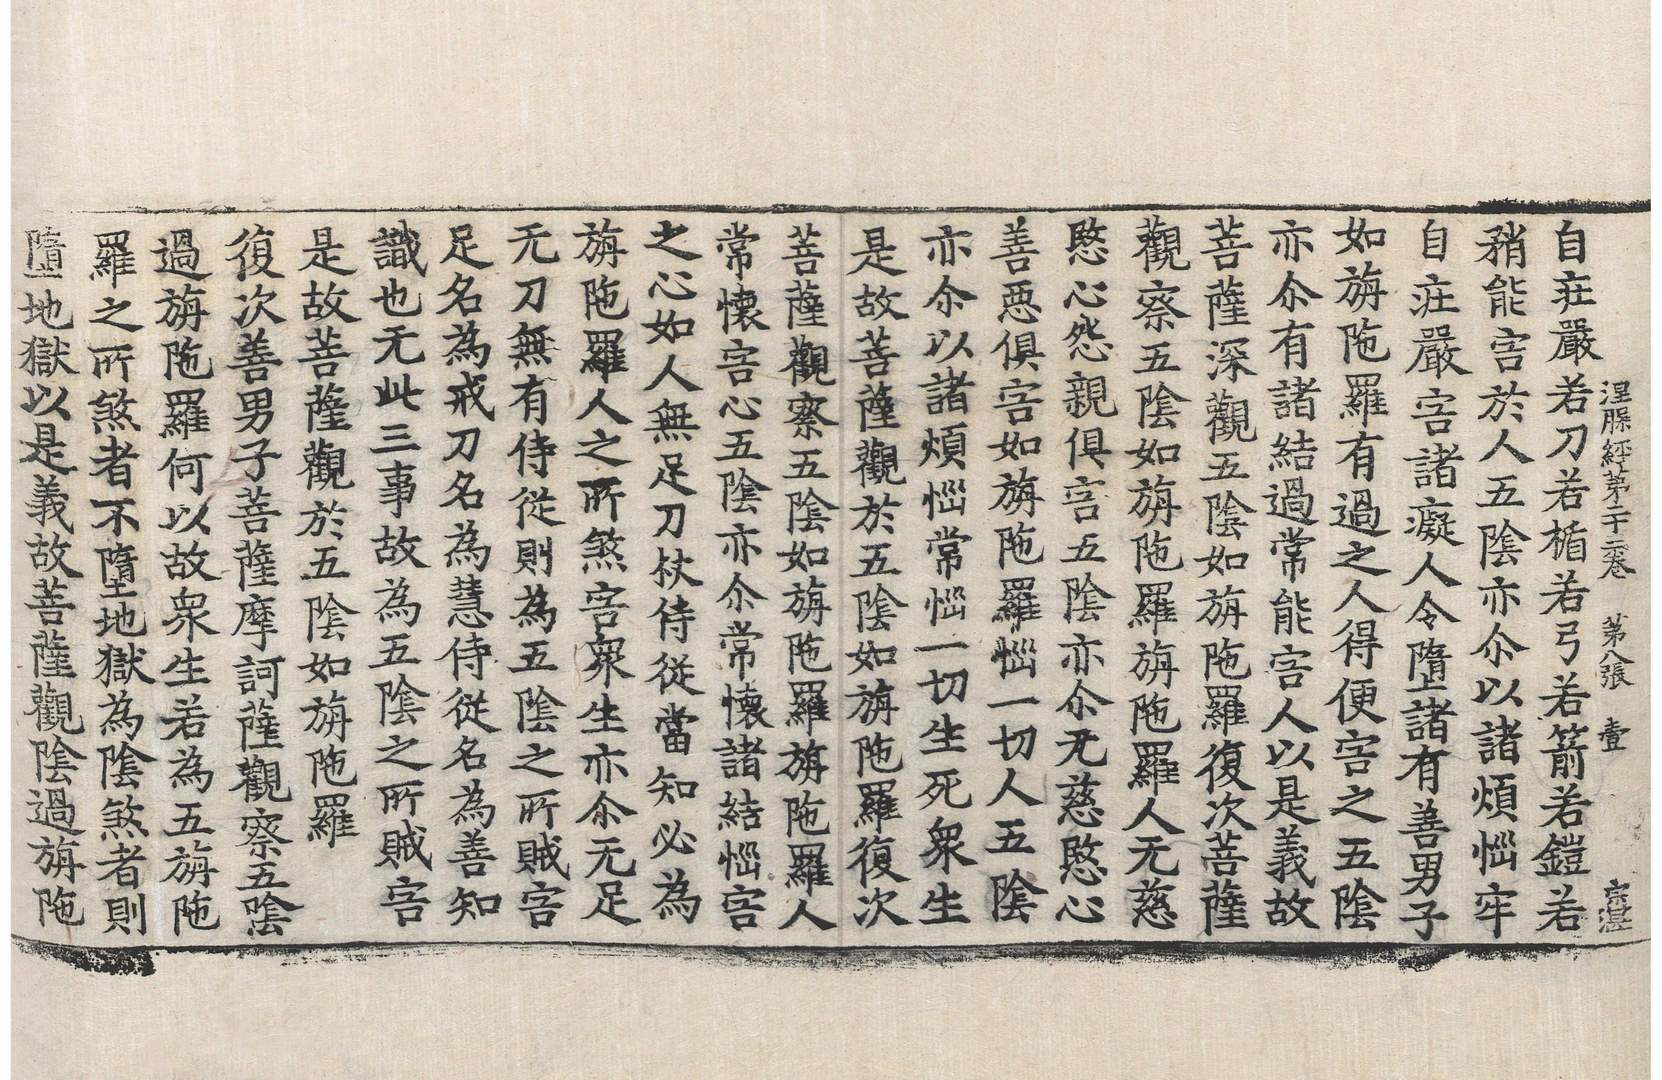 涅槃經第二十二卷　第八張　壹　宗湛
自在嚴若刀若楯若弓若箭若鎧若
矟能害於人五陰亦尒以諸煩惱牢
自在嚴害諸癡人令墮諸有善男子
如旃陁羅有過之人得便害之五陰
亦尒有諸結過常能害人以是義故
菩薩深觀五陰如旃陁羅復次菩薩
觀察五陰如旃陁羅旃陁羅人无慈
愍心怨親俱害五陰亦尒无慈愍心
善惡俱害如旃陁羅惱一切人五陰
亦尒以諸煩惱常惱一切生死衆生
是故菩薩觀於五陰如旃陁羅復次
菩薩觀察五陰如旃陁羅旃陁羅人
常懷害心五陰亦尒常懷諸結惱害
之心如人無足刀杖侍從當知必為
旃陁羅人之所煞害衆生亦尒无足
无刀無有侍從則為五陰之所賊害
足名為戒刀名為慧侍從名為善知
識也无此三事故為五陰之所賊害
是故菩薩觀於五陰如旃陁羅
復次善男子菩薩摩訶薩觀察五陰
過旃陁羅何以故衆生若為五旃陁
羅之所煞者不墮地獄為陰煞者則
墮地獄以是義故菩薩觀陰過旃陁